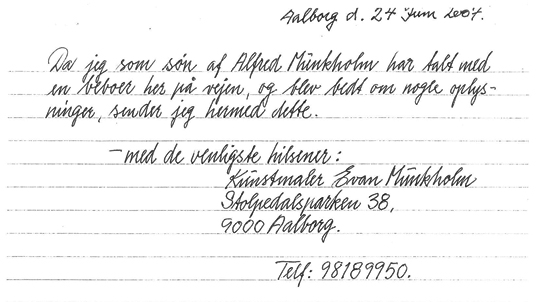 Aalborg d. 24 Juni 2007.
Da jeg som søn af Alfred Munkholm har talt med
en beboer her på vejen, og blev bedt om nogle oplys-
ninger, sender jeg hermed dette.
- med de venligste hilsener:
Kunstmaler Evan Munkholm
Stolpedalsparken 38,
9000 Aalborg.
Telf: 98189950.